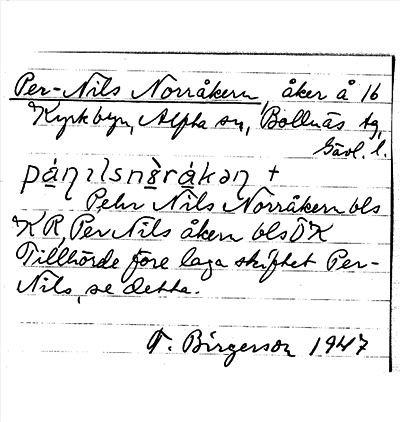 Per-Nils Norråkern, åker å 16
Kyrkbyn, Alfta sn, Bollnäs tg,
Gävl. l.
pá̱ɳɩlsnè̱rá̱kəɳ +
Pehr Nils Norråkern bls
KR, Per Nils åkern bls ÖK
Tillhörde före laga skiftet Per-
Nils, se detta.
T. Birgerson 1947